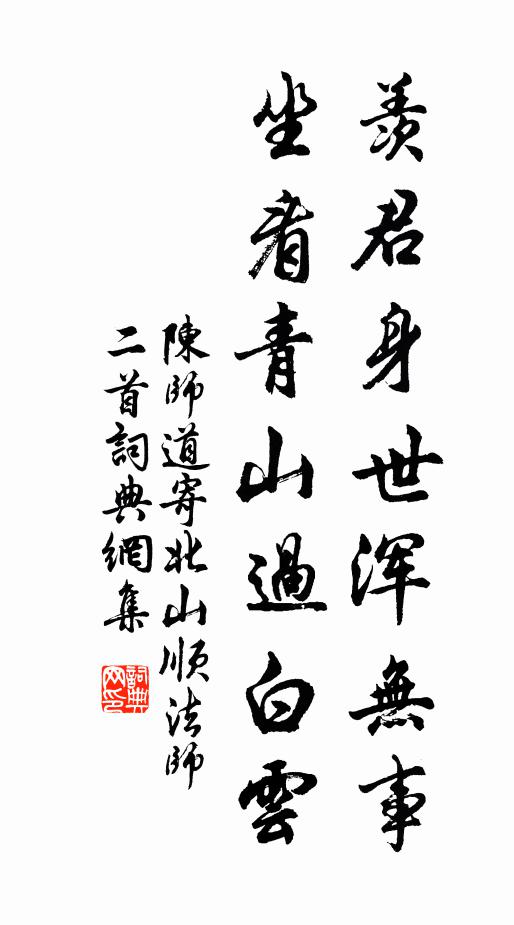 羨君身世浑無事
坐看青山過白雲
陳師道寄北山順法師
二首詞典網集
詞典网印